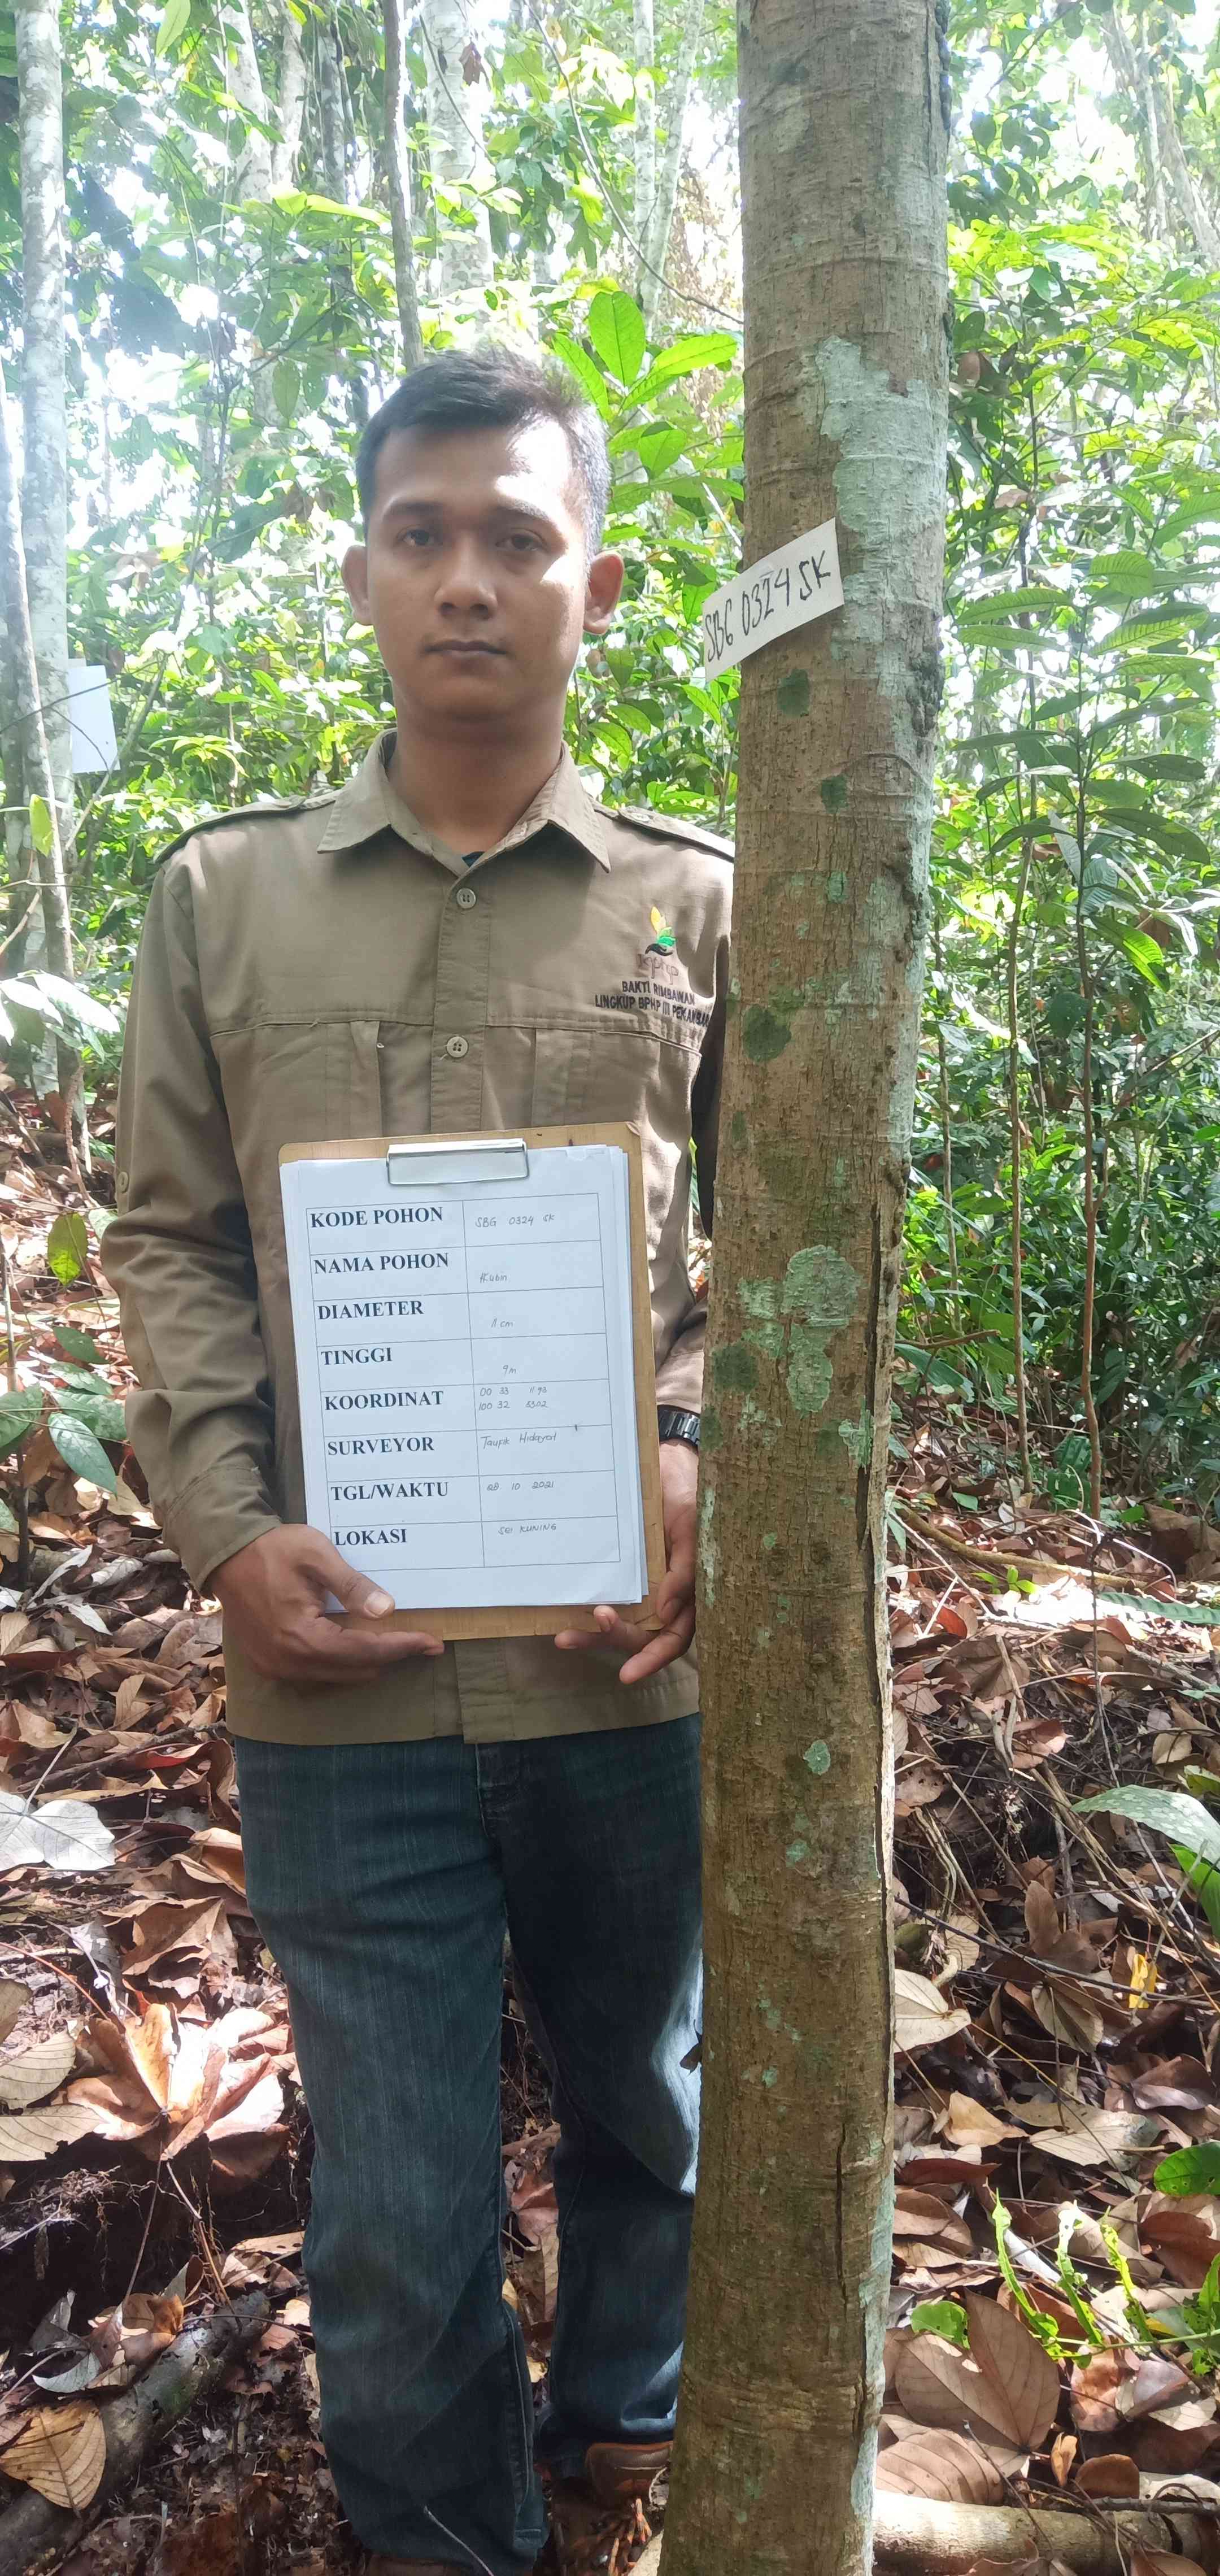 SBG 0324 SK
BAKTI RIMBAWAN
LINGKUP BPHP III PEKANBAR
KODE POHON SBG 0324 SK
NAMA POHON
DIAMETER 11 cm
TINGGI 9m
KOORDINAT 00 33 11.98
100 32
SURVEYOR Taufik Hidayat
TGL/WAKTU 10 2021
LOKASI SEI KUNING